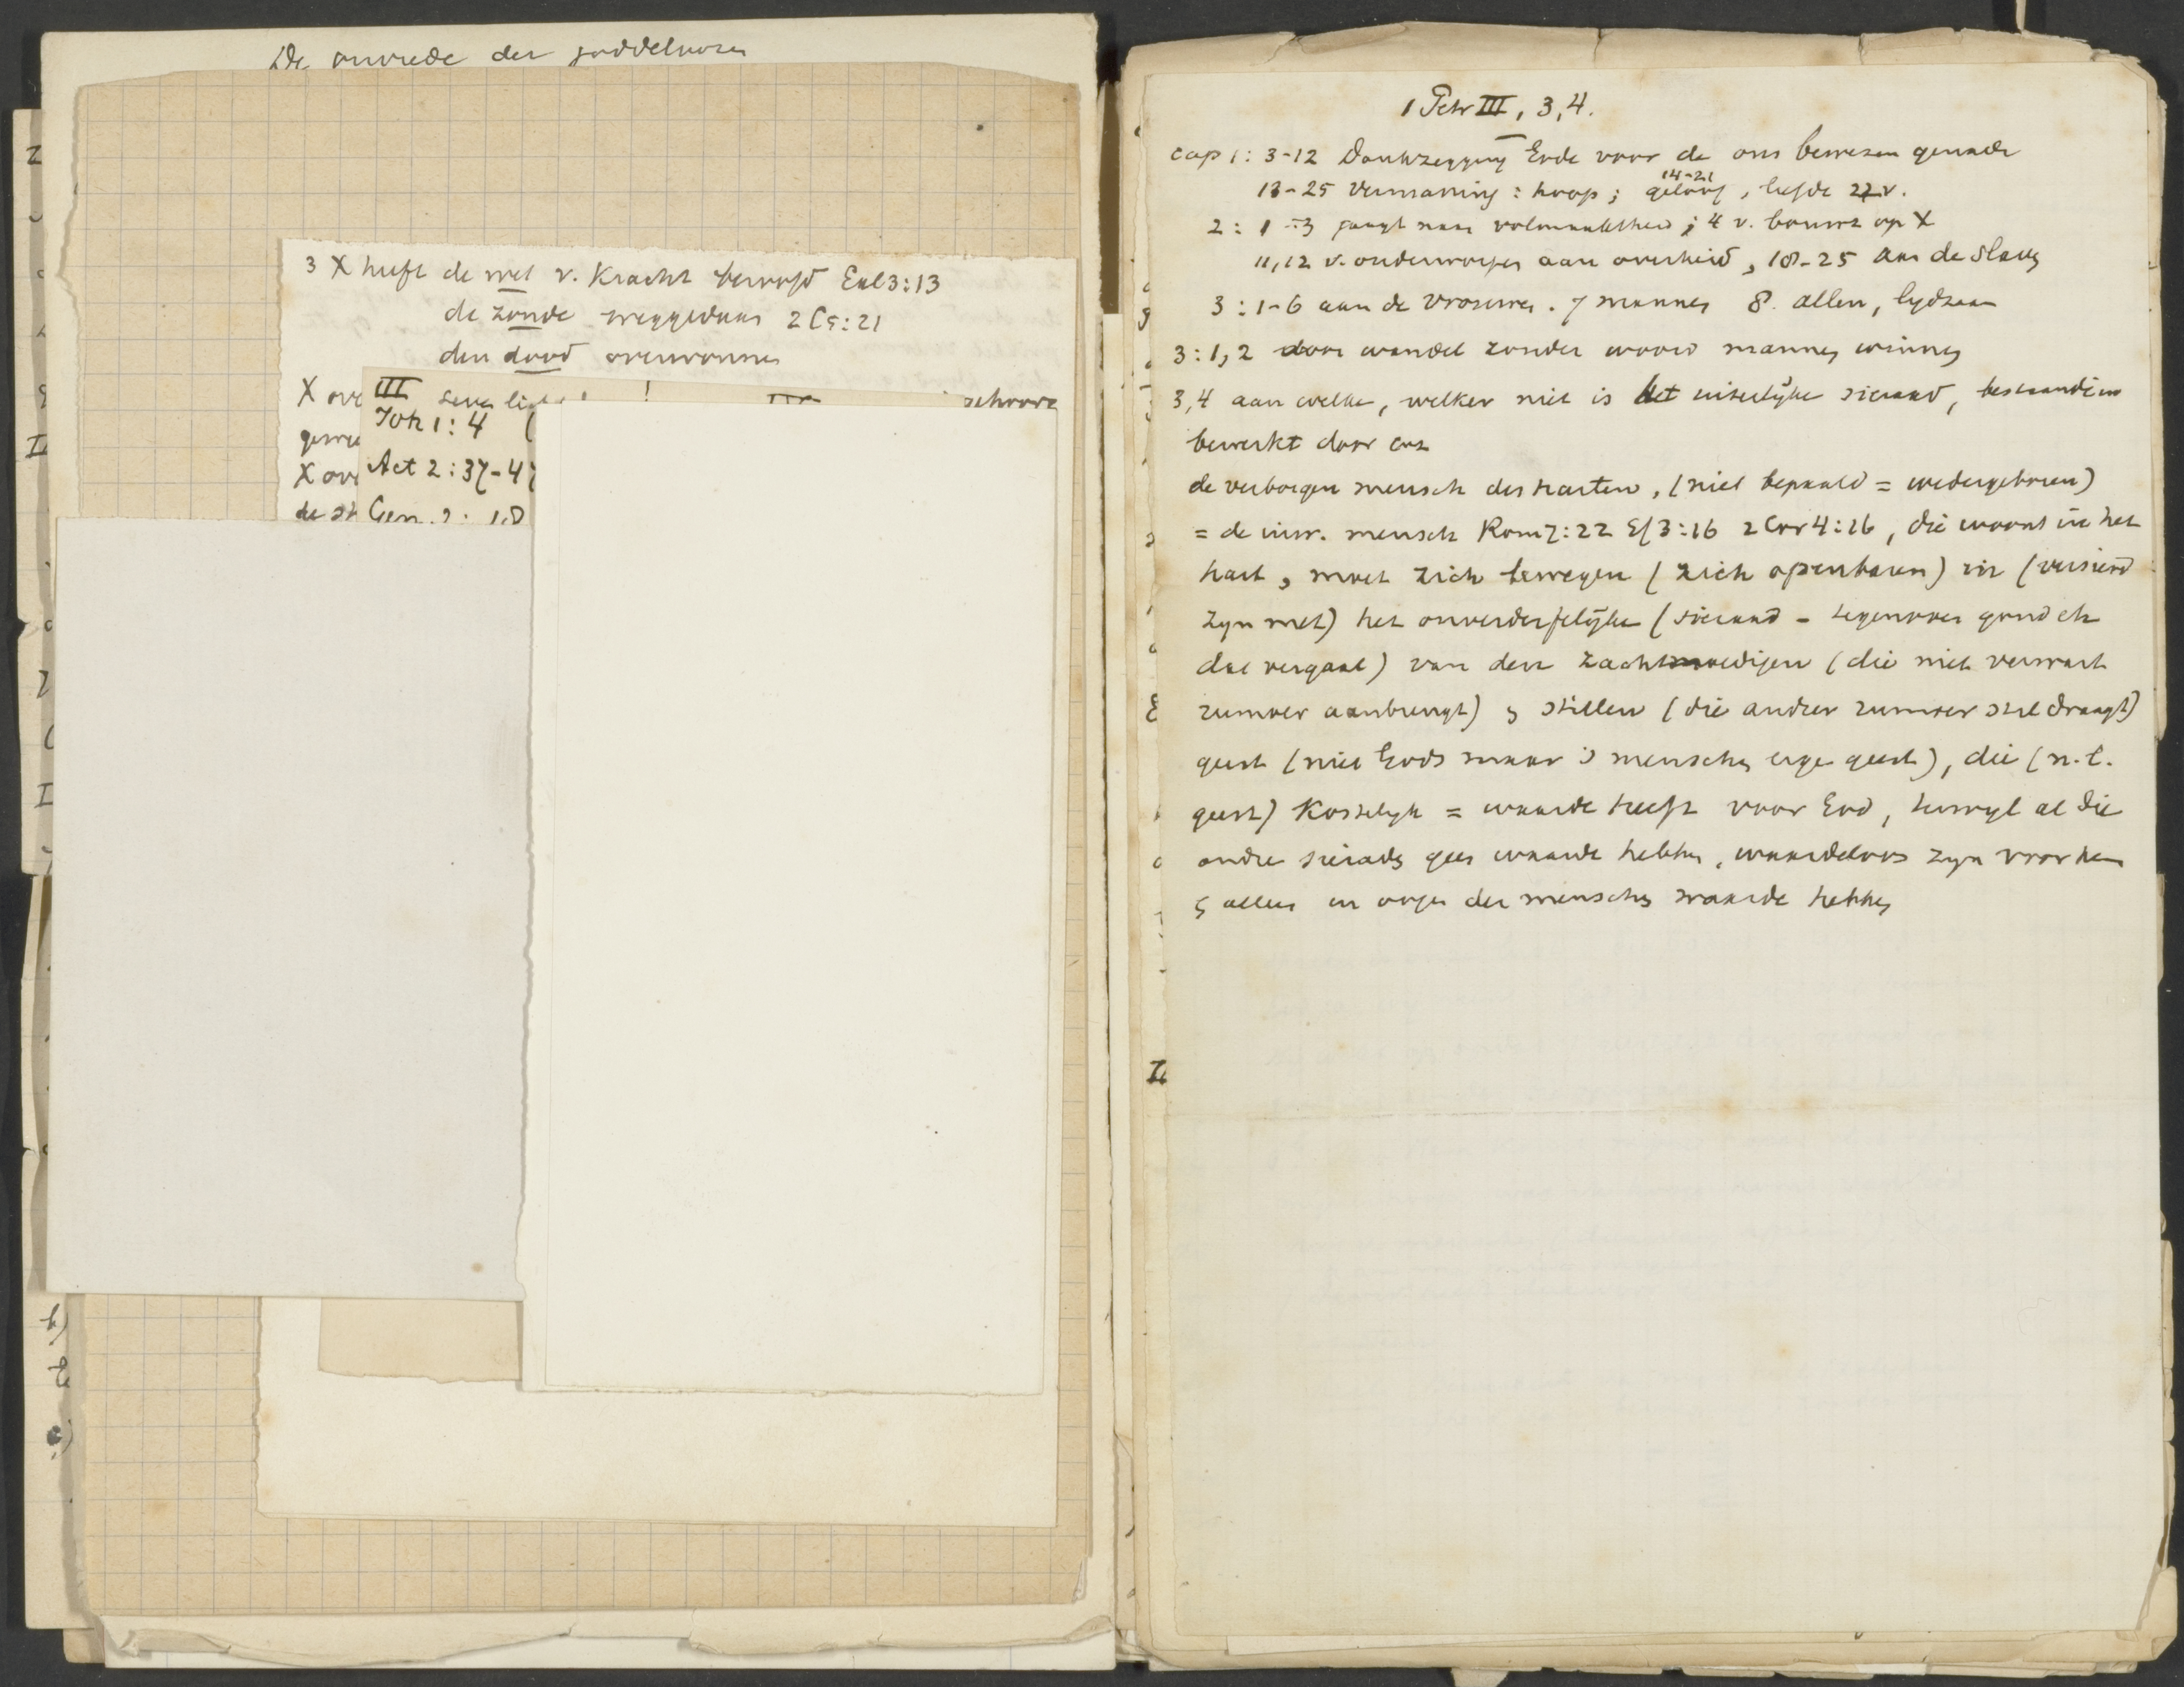 De onvrede der goddeloozen
3 X heeft de wet v. Kracht beroofd Gal 3:13
de zonde weggedaan 2 C 5:21
den dood overwonnen
X ove
III
schoore
Joh 1:4
gewe
Act 2:37-47
X ove
de st
Gen. 2: 18
1 Petr III, 3,4.
cap 1: 3-12 Dankzegging Gode voor de ons bewezen genade
14-21
13-25 Vermaning: hoop; geloof, liefde 22 v.
2: 1-3 jaagt naar volmaaktheid; 4 v. bouwt op X
11,12 v. onderworpen aan overheid, 18-25 aan de Slaven
3: 1-6 aan de vrouwen. 7 mannen 8. allen, lydzaam
3:1,2 door wandel zonder woord mannen winnen
3,4 aan welke, welker niet is het uiterlijke sieraad, bestaande in
bewerkt door enz
de verborgen mensch des harten, (niet bepaald = wedergeboren)
= de inw. mensch Rom 7:22 Ef 3:16 2 Cor 4:16, die woont in het
hart, moet zich bewegen (zich openbaren) in (versierd
zyn met) het onverderfelijke (sieraad - tegenover goud etc
dat vergaat) van den zachtmoedigen (die niet verwart
rumoer aanbrengt) en stillen (die ander rumoer stil draagt)
geest (niet Gods maar 's menschen eigen geest), die (n.l.
geest) Kostelyk = waarde heeft voor God, terwyl al die
andre sieraden geen waarde hebben, waardeloos zyn voor hem
en alleen in oogen der menschen waarde hebben